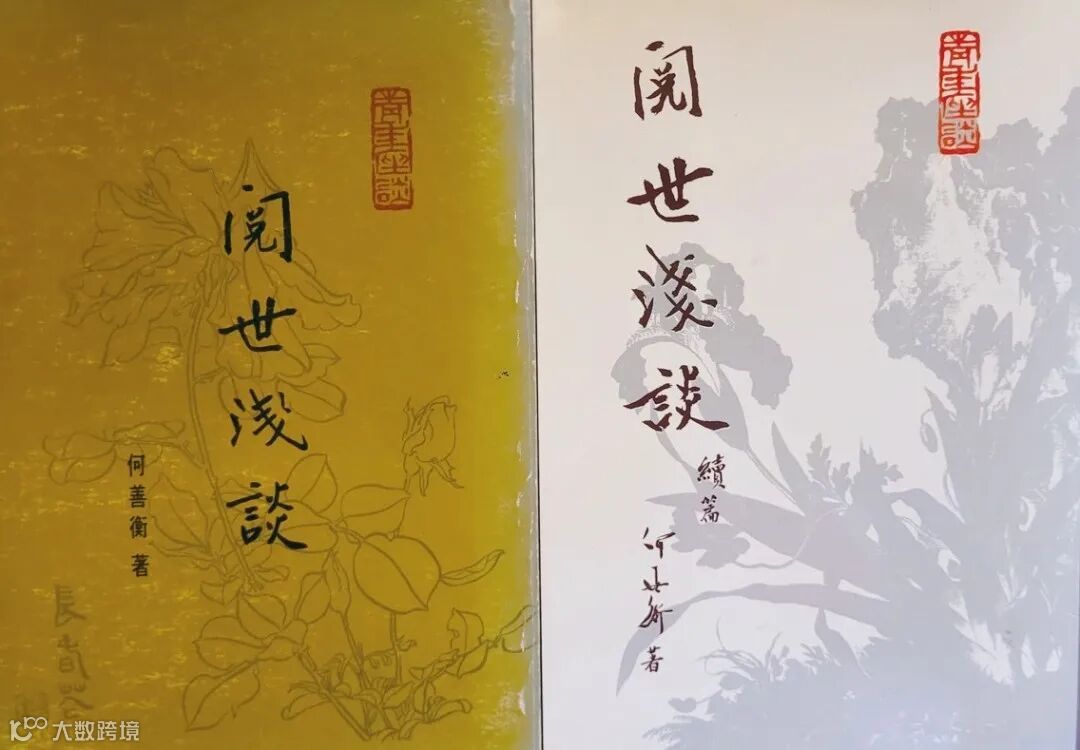 閱世浅談
何善衡著
閱世淺談
續篇
何善衡著
大数跨境